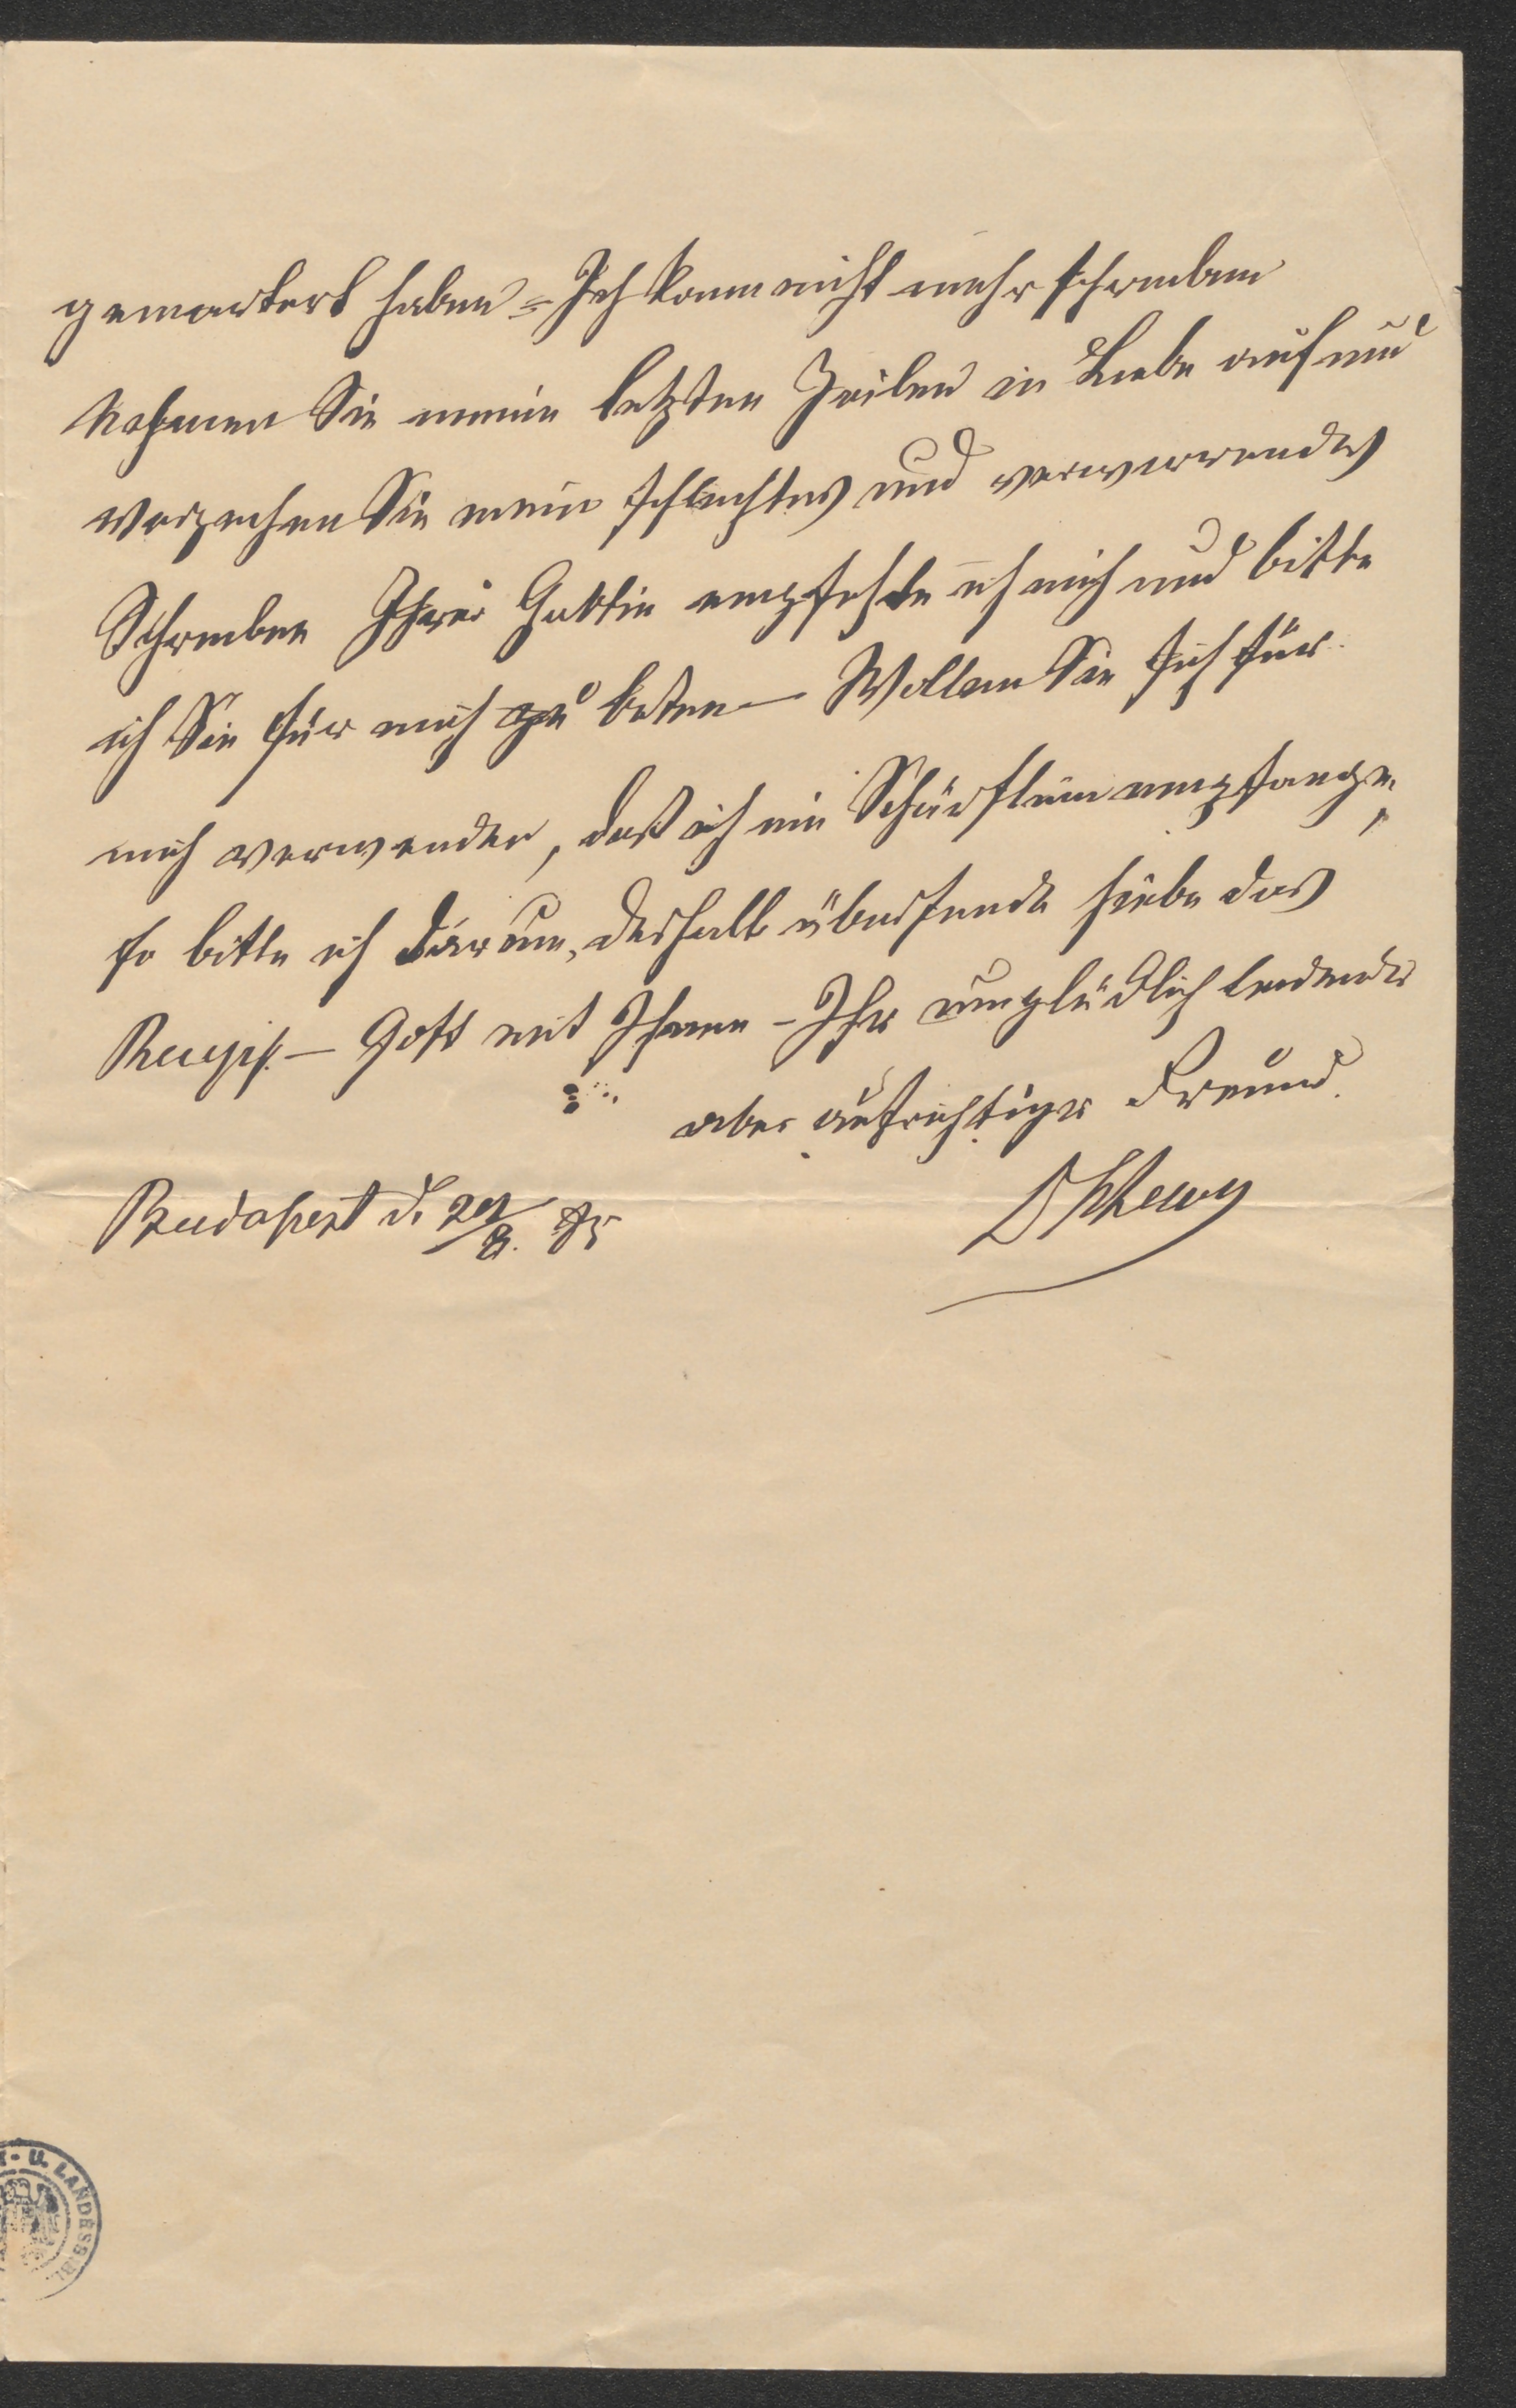 gemartert haben – Ich kann nicht mehr schreiben
Nehmen Sie meine letzten Zeilen in Liebe auf und
verzeihen Sie mein schlechtes und verwirrendes
Schreiben Ihrer Gattin empfehle ich mich und bitte
ich Sie für mich zu beten – Wollen Sie sich für
mich verwenden, daß ich ein Schärflein empfange,
so bitte ich darum, deshalb übersende das
Recepis. – Gott mit Ihnen – Ihr unglücklich leidender
aber aufrichtiger Freund.
Budapest d. 29/8. 85
U. LANDESBI